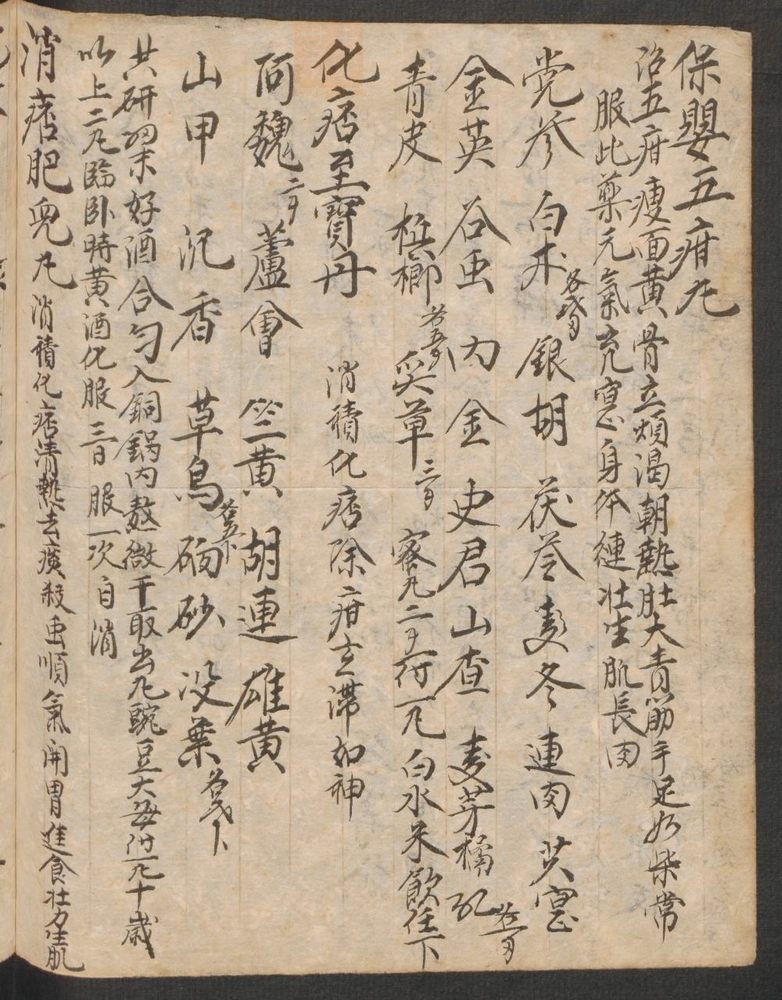 保嬰五疳凢
治五疳瘦面黄骨立煩渴朝熱肚大青筋手足如柴常
服此藥元氣充寔身体健壮生肌長肉
党参 白术 各戔 銀胡 茯苓 麦冬 連肉 芡寔
金英 谷虫 内金 史君 山查 麦芽 橘
青皮 梹榔 各五 吴草 三 蜜凢二 付一凢白水米飲任下
化痞至寶丹 消積化痞除疳去滞如神
阿魏 二 蘆會 竺黄 胡連 雄黄
山甲 沉香 草烏 各五下 硇砂 没藥 各戔下
共研细末好酒合匀入銅鍋内熬微干取出凢豌豆大每付一凢十歲
以上二凢臨卧時黄酒化服 三日服一次自消
消痞肥兒凢 消積化痞清熱去痰殺虫順氣開胃進食壮力生肌